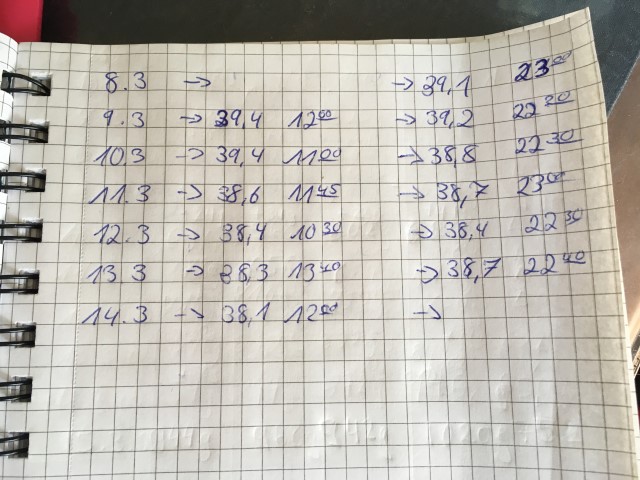 8.3 → → 39,1 23⁰⁰
9.3 → 39,4 12⁰⁰ → 39,2 22²⁰
10.3 → 39,4 11⁰⁰ → 38,8 22³⁰
11.3 → 38,6 11⁴⁵ → 38,7 23⁰⁰
12.3 → 38,4 10³⁰ → 38,4 22³⁰
13.3 → 38,3 13⁴⁰ → 38,7 22⁴⁰
14.3 → 38,1 12⁰⁰ →